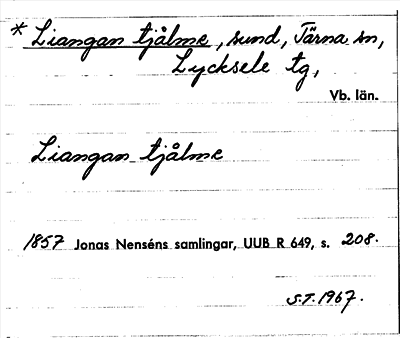 * Liangan tjålme, sund, Tärna sn,
Lycksele tg,
Vb. län.
Liangan tjålme
1857 Jonas Nenséns samlingar, UUB R 649, s. 208.
S.T. 1967.